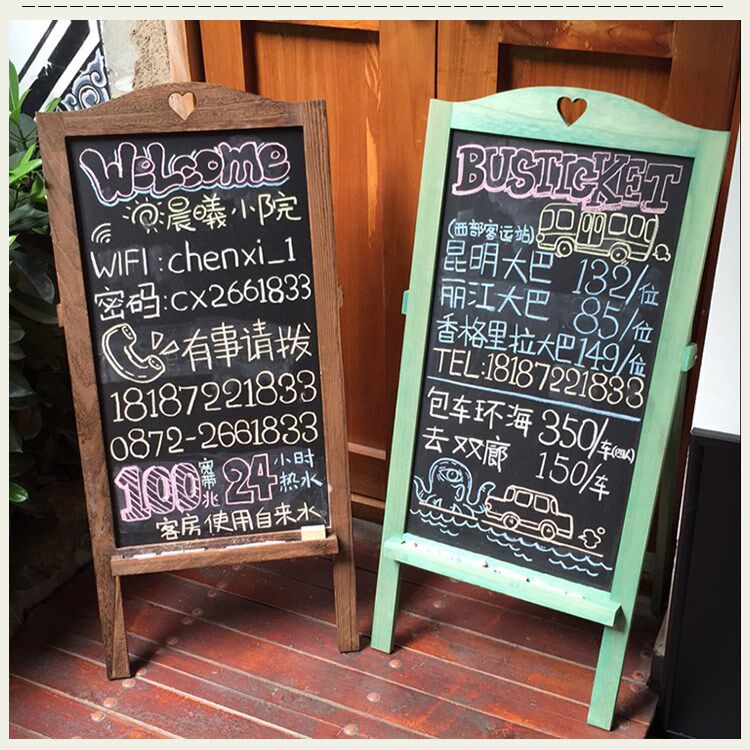 Welcome
晨曦小院
WIFI:chenxi_1
密码:cx2661833
有事请拨
18187221833
0872-2661833
100宽带兆 24小时热水
客房使用自来水
BUSTICKET
(西部客运站)
昆明大巴 132/位
丽江大巴 85/位
香格里拉大巴149/位
TEL:18187221833
包车环海 350/车(四人)
去双廊 150/车